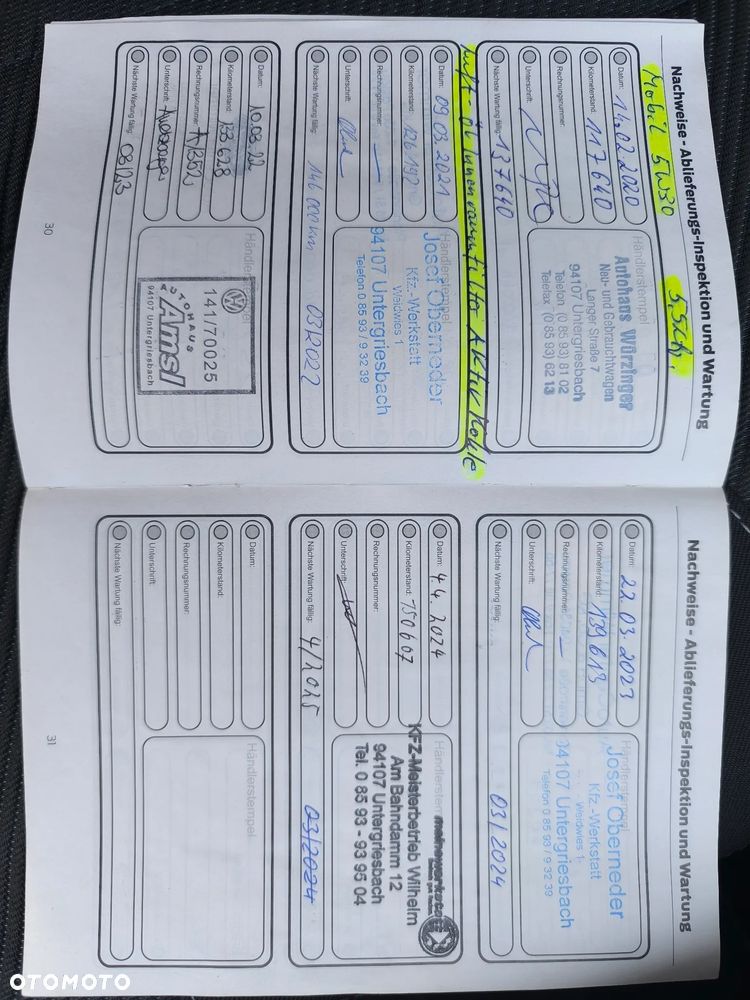 Nachweise - Ablieferungs-Inspektion und Wartung
Mobil 5W30 5,5 Ltr.
Datum: 14.02.2020
Kilometerstand: 117640
Rechnungsnummer:
Unterschrift:
Nächste Wartung fällig: 137640
Händlerstempel
Autohaus Würzinger
Neu- und Gebrauchtwagen
Langer Straße 7
94107 Untergriesbach
Telefon (0 85 93) 81 02
Telefax (0 85 93) 62 13
Luft - Öl Innenraumfilter Aktiv Kohle
Datum: 09.03.2021
Kilometerstand: 126192
Rechnungsnummer: —
Unterschrift:
Nächste Wartung fällig: 146 000 km 03/2022
Händlerstempel
Josef Oberneder
Kfz.-Werkstatt
Waidwies 1
94107 Untergriesbach
Telefon 0 85 93 / 9 32 39
Datum: 10.03.22
Kilometerstand: 133628
Rechnungsnummer:
Unterschrift:
Nächste Wartung fällig: 03/23
Händlerstempel
141/70025
AUTOHAUS
Amsl
94107 Untergriesbach
30
Nachweise - Ablieferungs-Inspektion und Wartung
Datum: 22.03.2023
Kilometerstand: 139613
Rechnungsnummer: —
Unterschrift:
Nächste Wartung fällig: 03/2024
Händlerstempel
Josef Oberneder
Kfz.-Werkstatt
Waidwies 1
94107 Untergriesbach
Telefon 0 85 93 / 9 32 39
Datum: 4.4.2024
Kilometerstand: 150607
Rechnungsnummer:
Unterschrift:
Nächste Wartung fällig: 4/2025 03/2024
Händlerstempel
meinewerkstatt
KFZ-Meisterbetrieb Wilhelm
Am Bahndamm 12
94107 Untergriesbach
Tel. 0 85 93 - 93 95 04
Datum:
Kilometerstand:
Rechnungsnummer:
Unterschrift:
Nächste Wartung fällig:
Händlerstempel
31
OTOMOTO